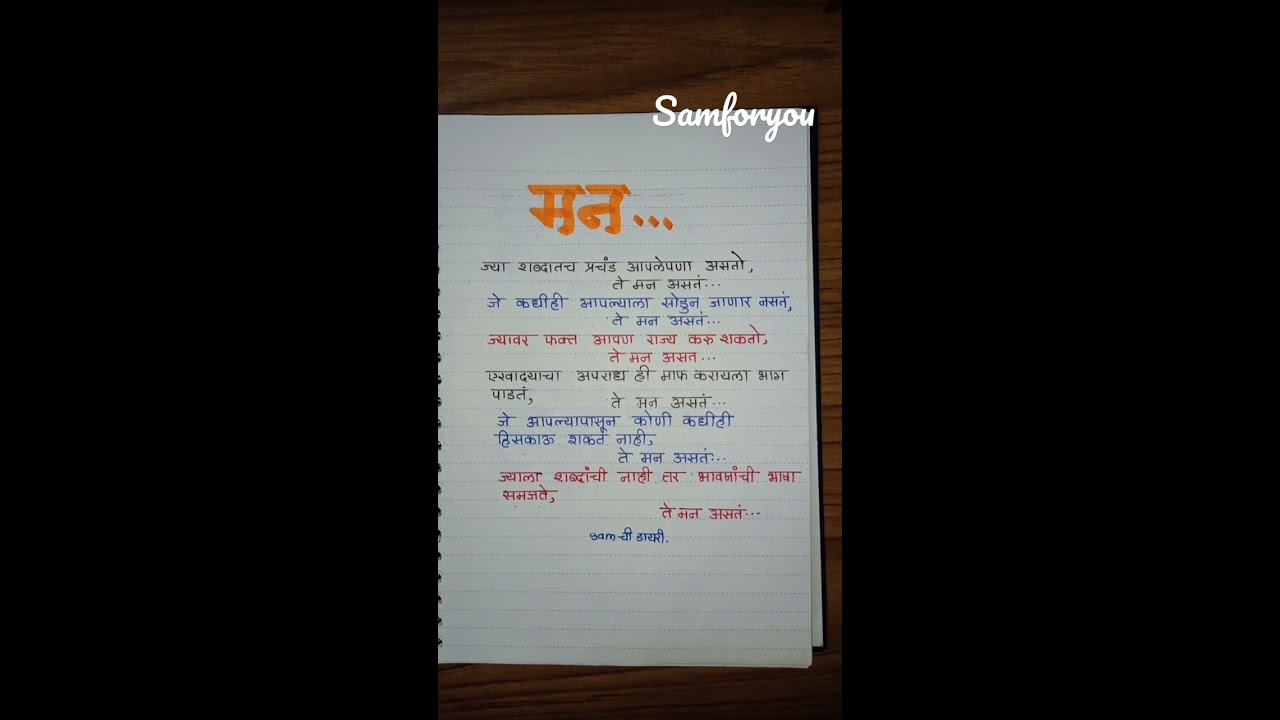 Samforyou
मन...
ज्या शब्दातच प्रचंड आपलेपणा असतो,
ते मन असतं...
जे कधीही आपल्याला सोडुन जाणार नसतं,
ते मन असतं...
ज्यावर फक्त आपण राज्य करु शकतो,
ते मन असत...
एखादयाचा अपराध ही माफ करायला भाग
पाडतं,
ते मन असतं...
जे आपल्यापासून कोणी कधीही
हिसकाऊ शकत नाही,
ते मन असतं...
ज्याला शब्दांची नाही तर भावनांची भाषा
समजते,
ते मन असतं...
sam ची डायरी.